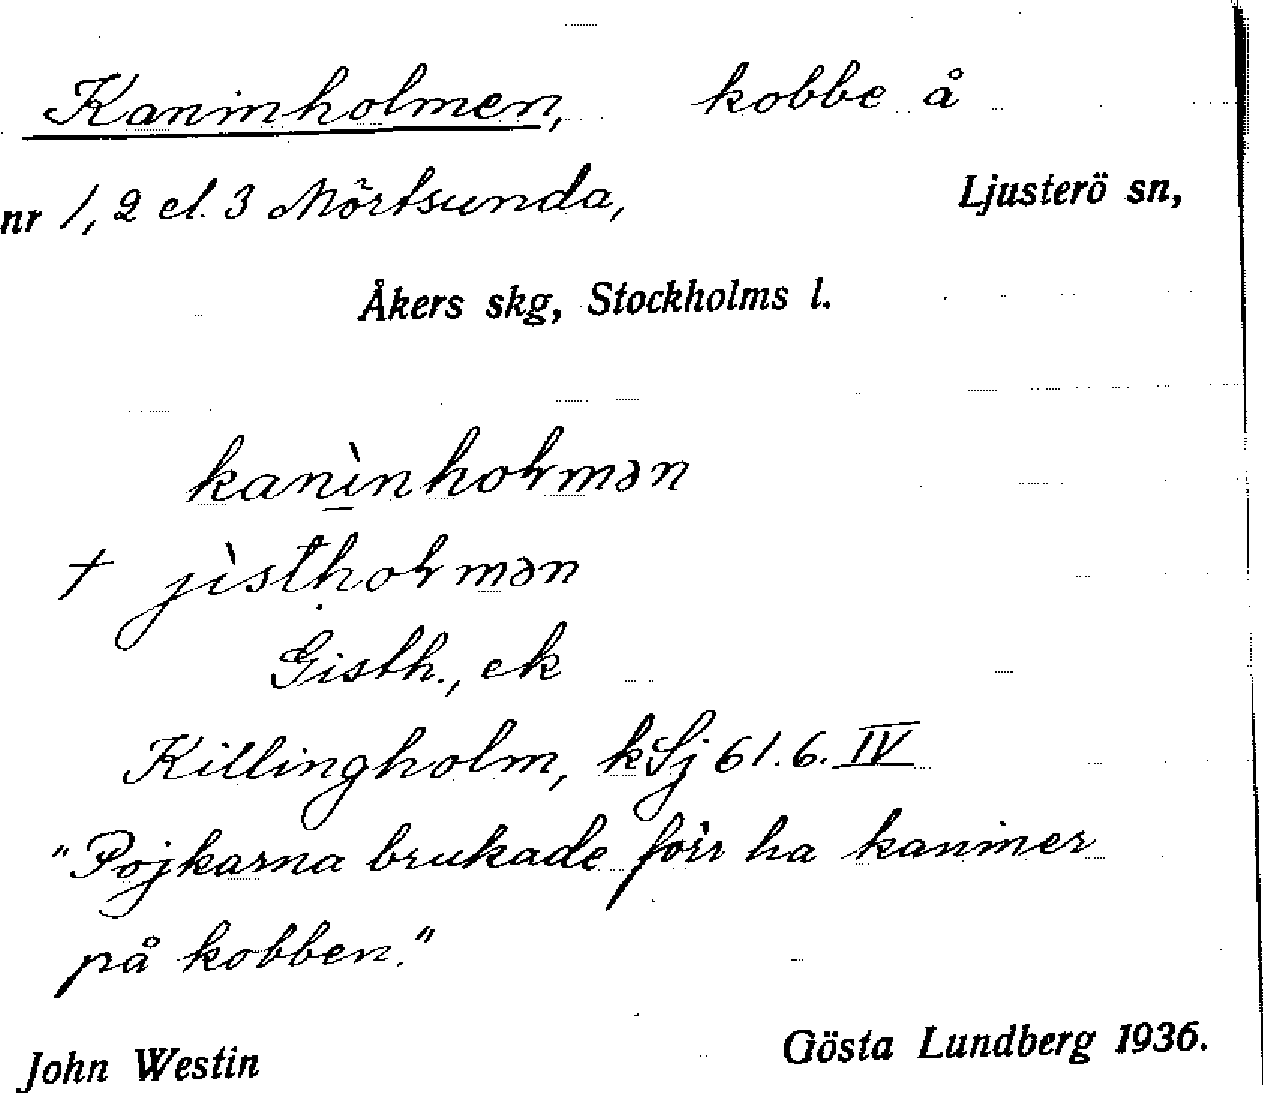 Kaninholmen, kobbe å
nr 1, 2 el. 3 Mörtsunda, Ljusterö sn,
Åkers skg, Stockholms l.
kanìnhołmən
† jìsthołmən
Gisth., ek
Killingholm, kSj 61.6. IV
"Pojkarna brukade förr ha kaniner
på kobben."
John Westin Gösta Lundberg 1936.